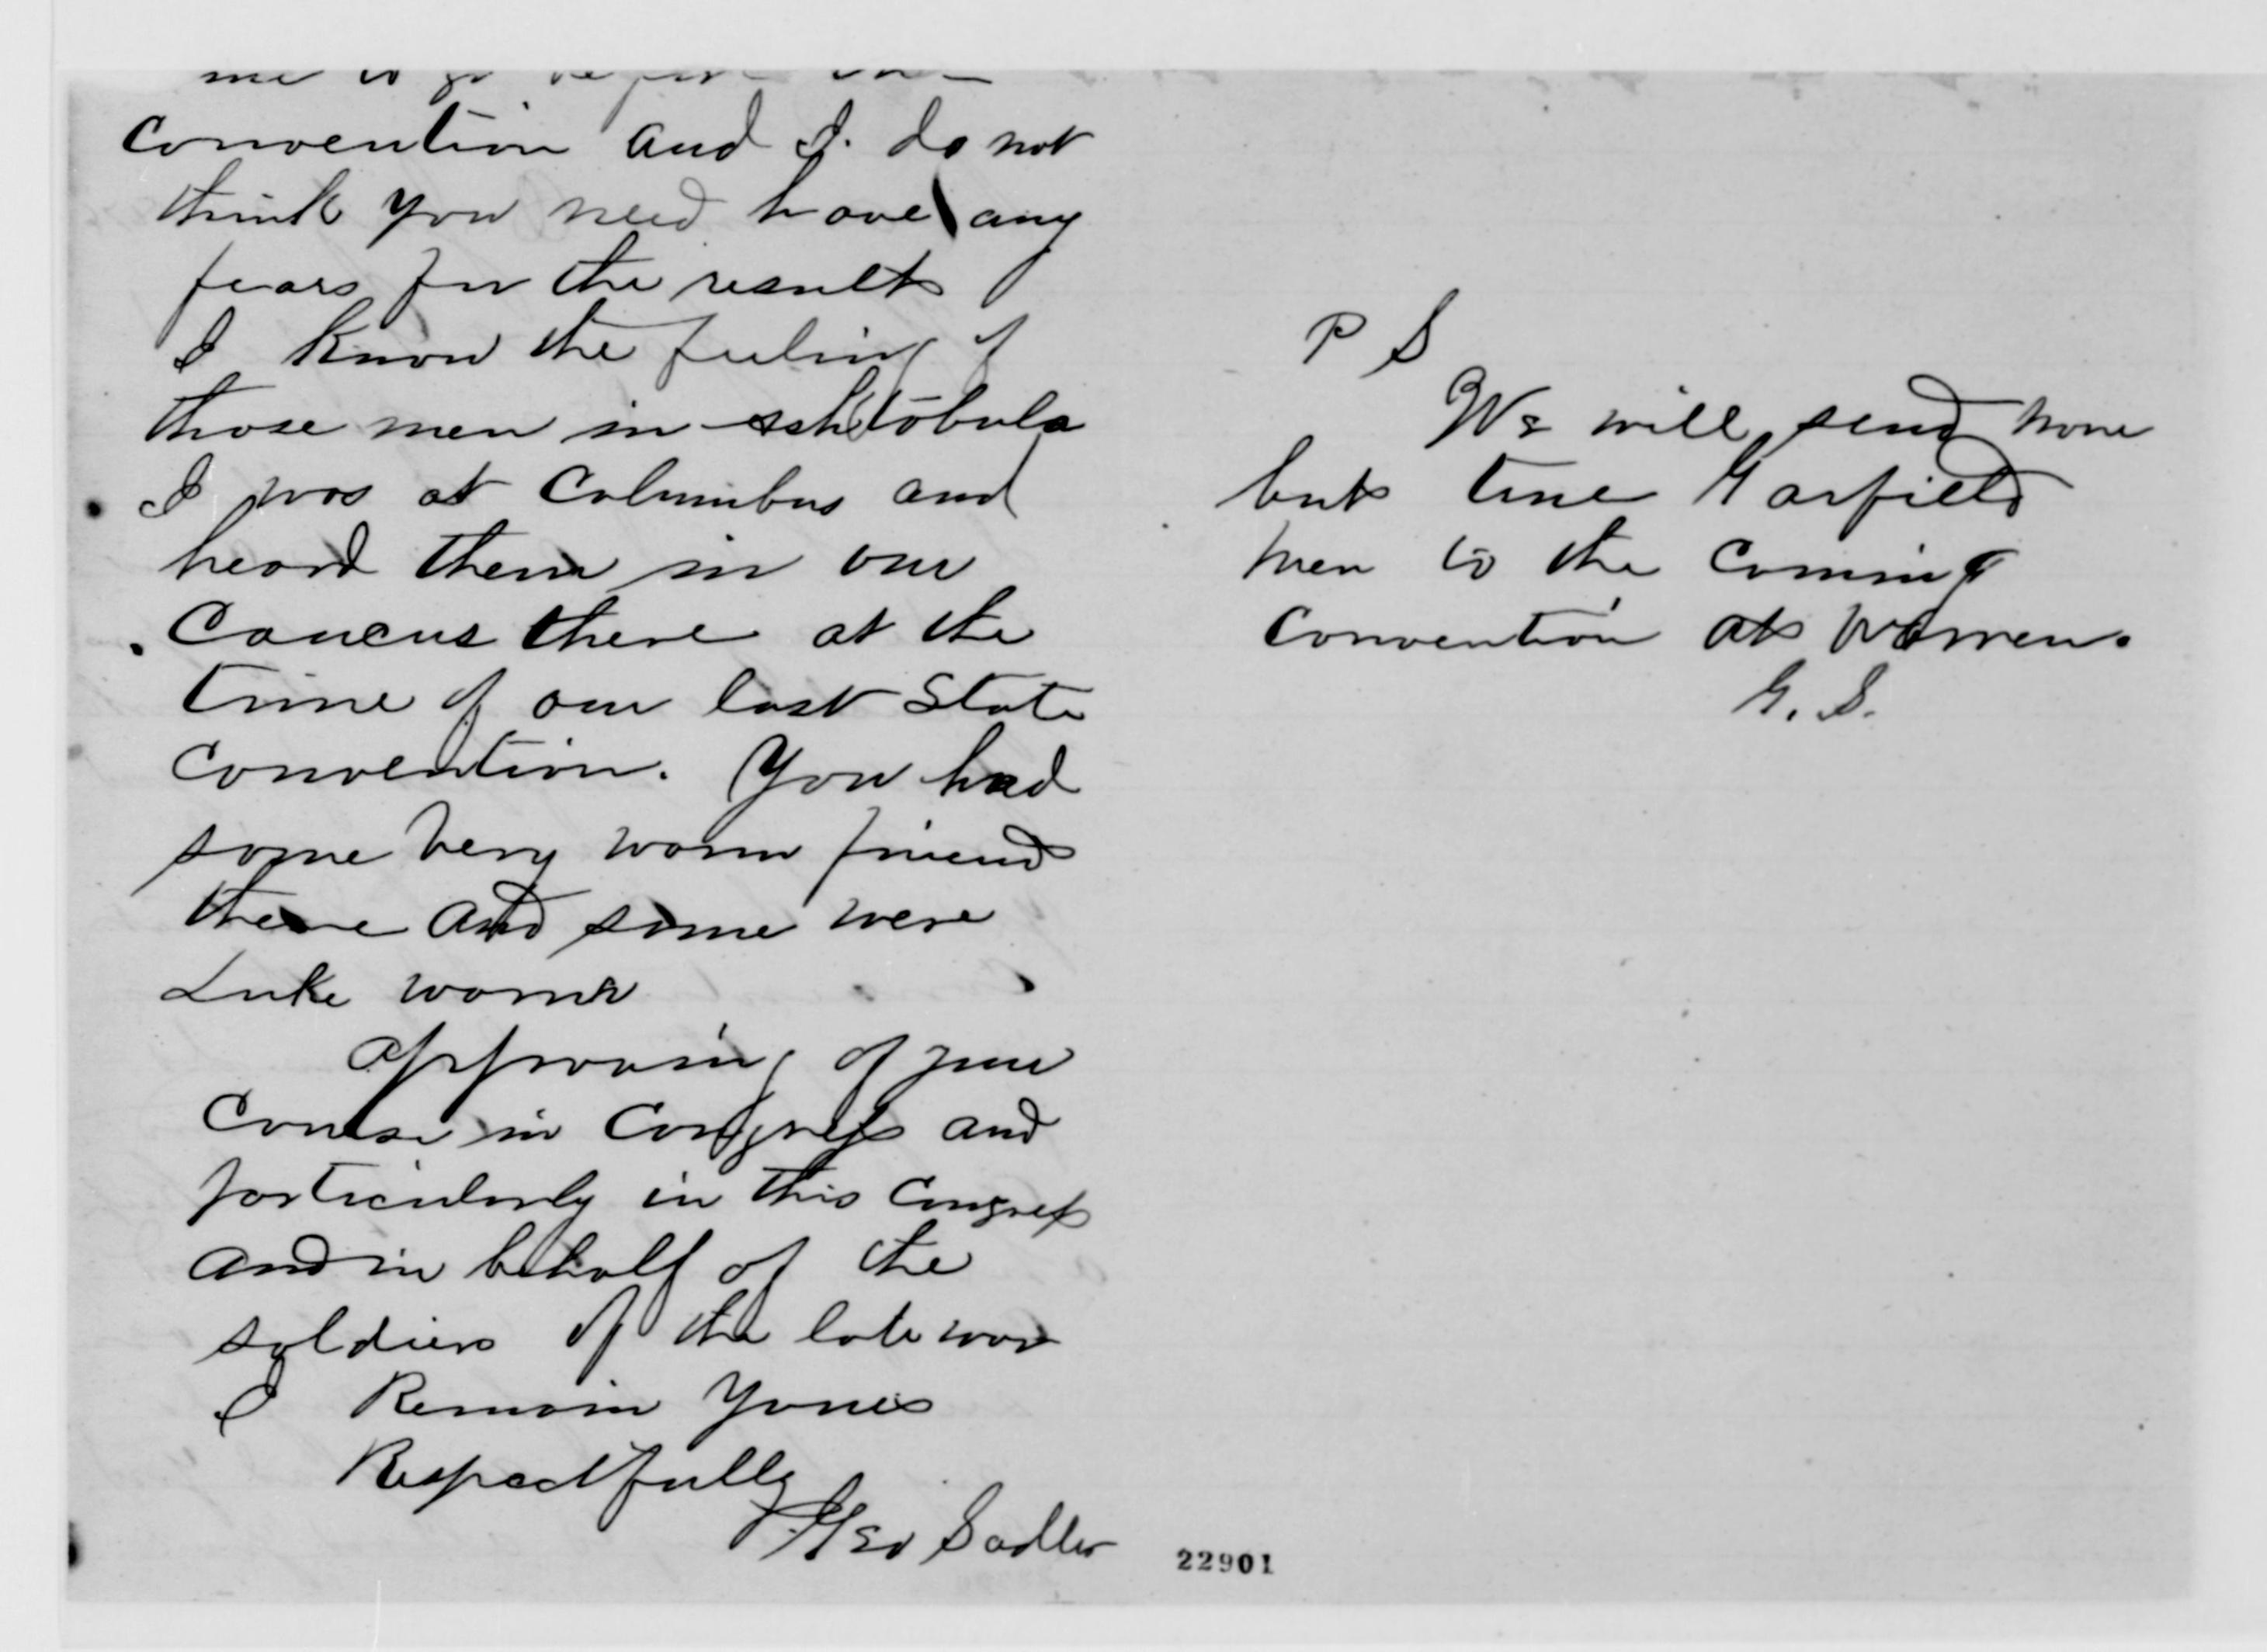 me to go before the
Convention and I. do not
think you need have any
fears for the result
I know the feeling of
those men in Ashtobula
I was at Columbus and
heard them in our
Caucus there at the
time of our last State
Convention. You had
some very warm friends
there and some were
Luke warm
approving of your
Course in Congress and
particularly in this Congress
and in behalf of the
soldiers of the late war
I Remain Yours
Respectfully
Geo Sadler
P S
We will send none
but true Garfield
men to the Coming
Convention at Warren.
G. S.
22901